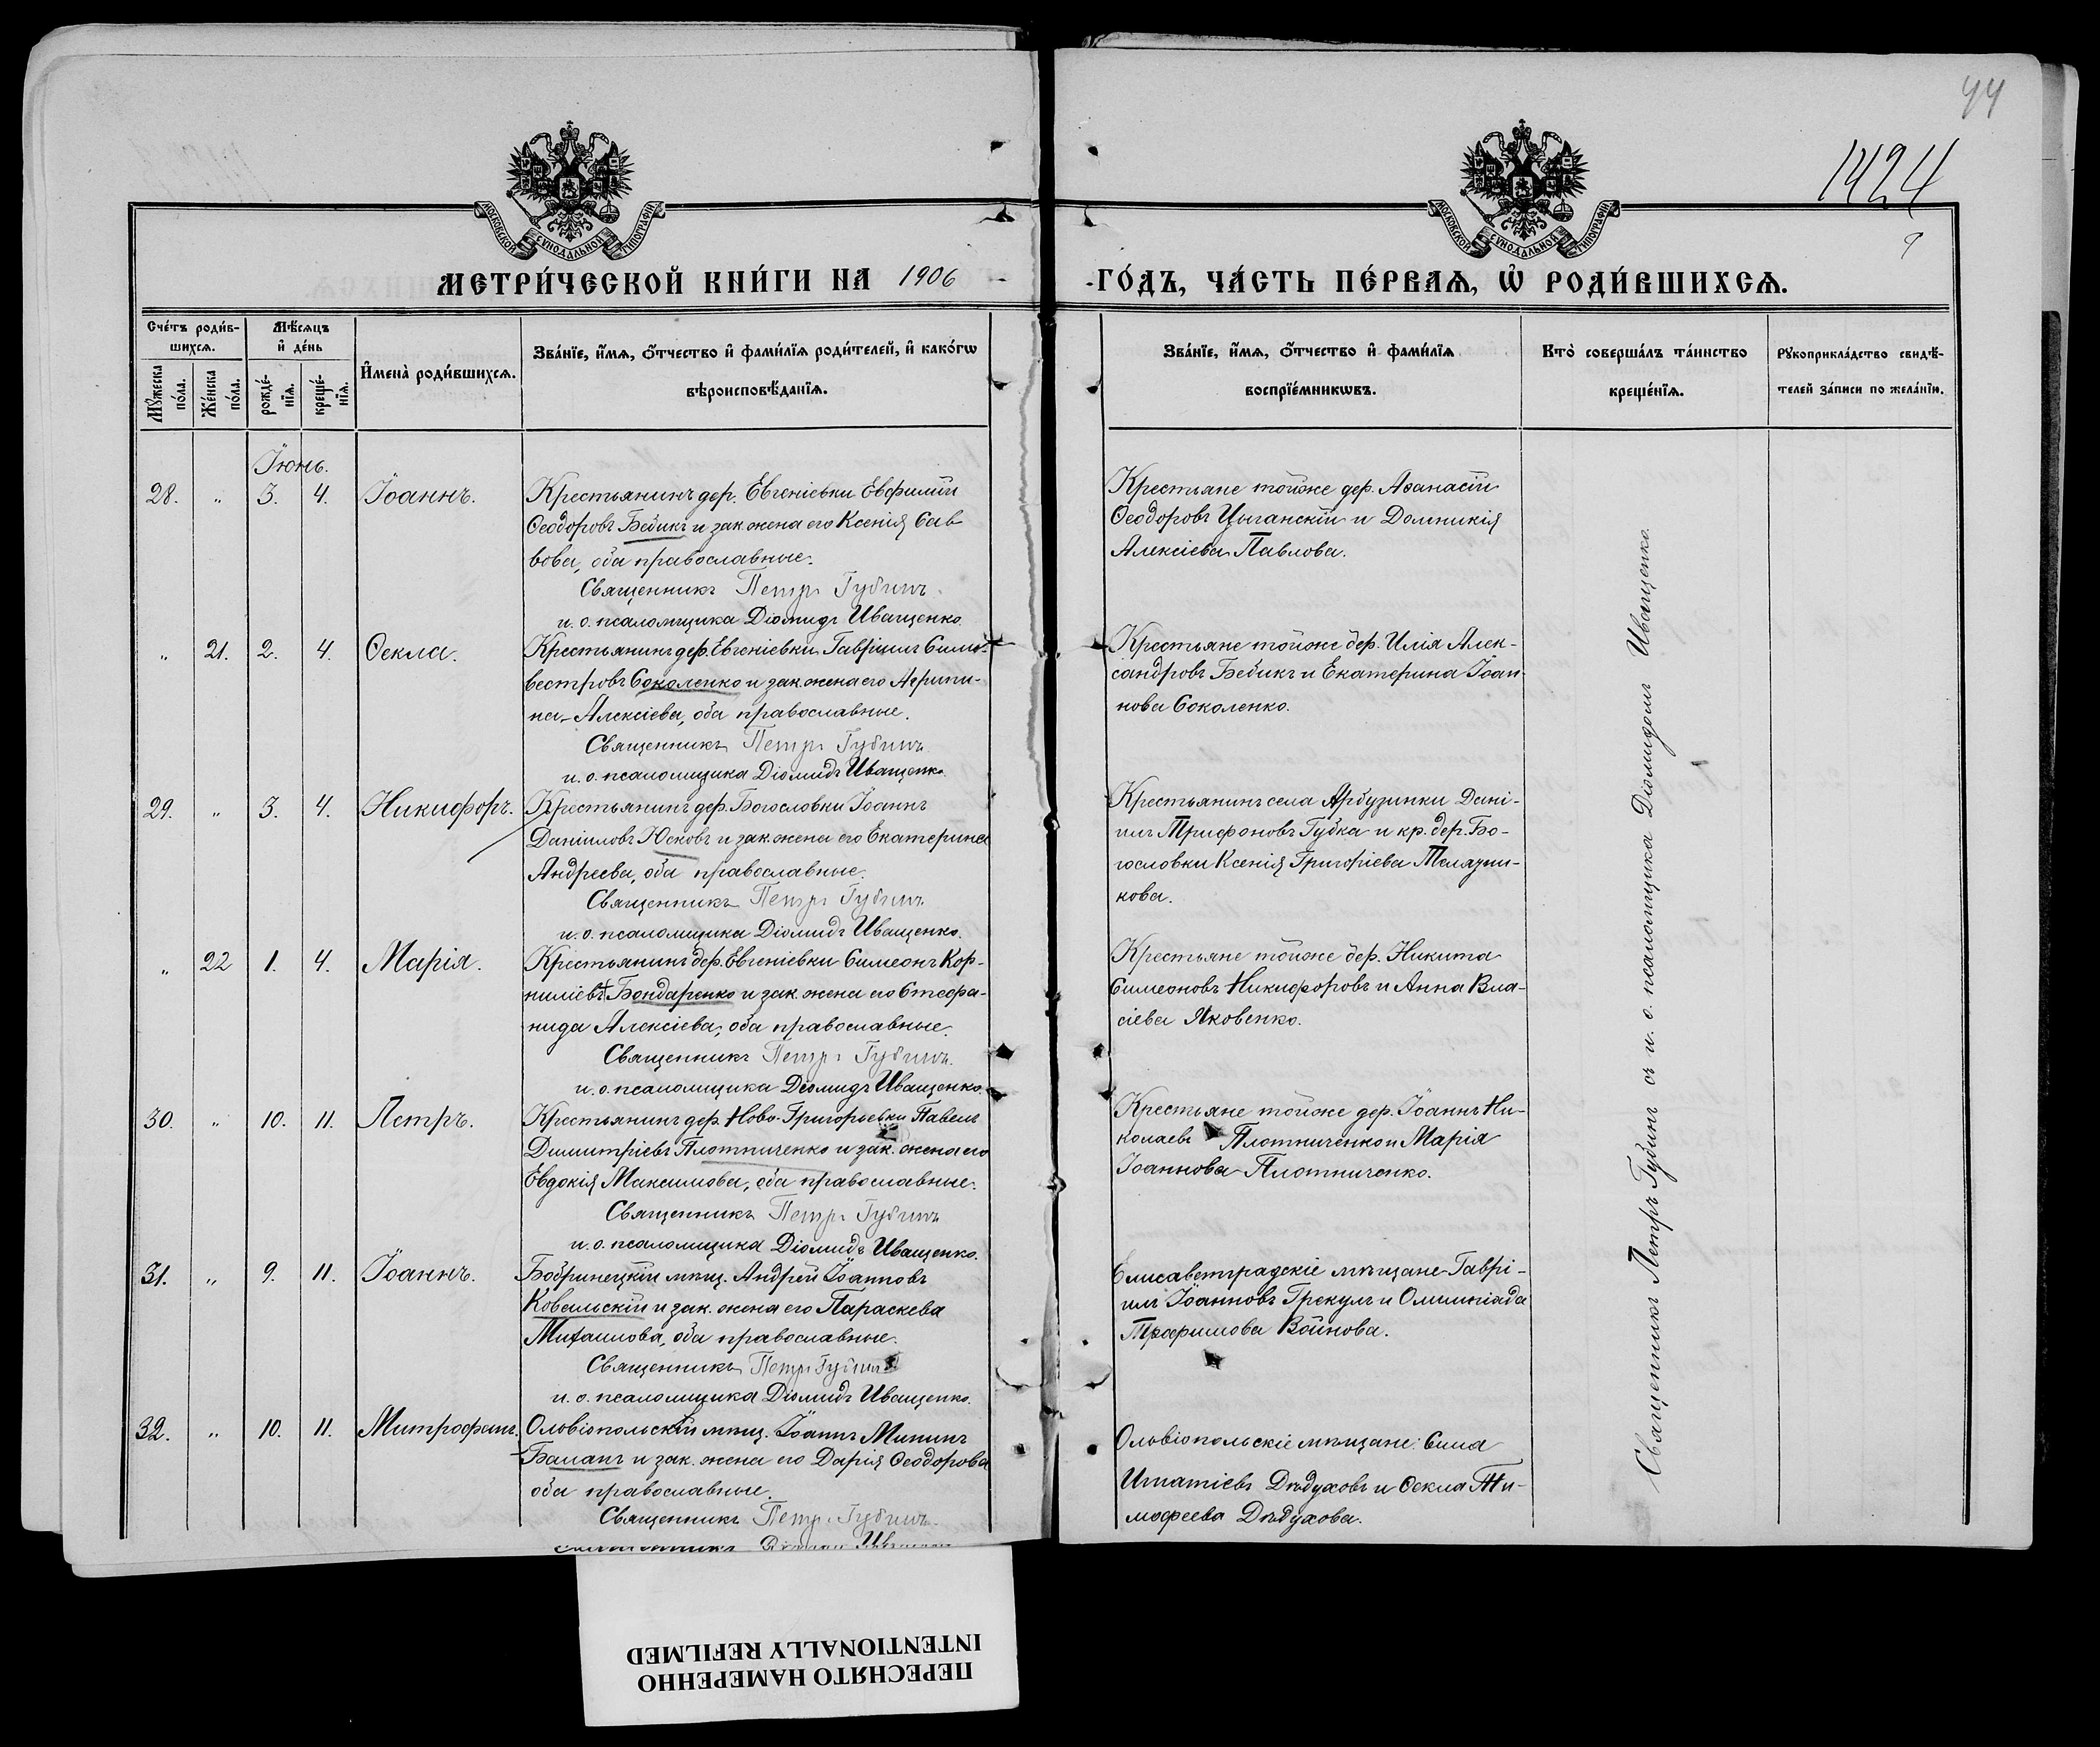 44
1424
9
МОСКОВСКОЙ СѴНОДАЛЬНОЙ ТИПОГРАФІИ
МОСКОВСКОЙ СѴНОДАЛЬНОЙ ТИПОГРАФІИ
МЕТРИ́ЧЕСКОЙ КНИ́ГИ НА 1906
ГО́ДЪ, ЧА́СТЬ ПЕ́РВАѦ, Ѡ҆ РОДИ́ВШИХСѦ.
Сче́тъ роди́в-
шихсѧ.
Мѣ́сѧцъ
и҆ де́нь
И҆мена̀ роди́вшихсѧ.
Зва́нїе, и҆́мѧ, ѻ҆́тчество и҆ фами́лїѧ роди́телей, и҆ како́гѡ
вѣроисповѣ́данїѧ.
Мꙋ́жеска
по́ла.
Же́нска
по́ла.
рожде́-
нїѧ.
креще́-
нїѧ.
Зва́нїе, и҆́мѧ, ѻ҆́тчество и҆ фами́лїѧ
воспрїе́мникѡвъ.
Кто̀ соверша́лъ та́инство
креще́нїѧ.
Рꙋкоприкла́дство свидѣ́-
телей за́писи по жела́нїю.
Іюнь.
28. „ 3. 4. Іоаннъ. Крестьянинъ дер. Евгеніевки Евфимій
Ѳеодоровъ Бедикъ и зак. жена его Ксенія Сав-
вова, оба православные.
Священникъ Петръ Губинъ
и. о. псаломщика Діомидъ Иващенко.
Крестьяне тойже дер. Аѳанасій
Ѳеодоровъ Цыганскій и Домникія
Алексіева Павлова.
„ 21. 2. 4. Ѳекла. Крестьянинъ дер. Евгеніевки Гавріилъ Силь-
вестровъ Соколенко и зак. жена его Агрипи-
на Алексіева, оба православные.
Священникъ Петръ Губинъ
и. о. псаломщика Діомидъ Иващенко.
Крестьяне тойже дер. Илія Алек-
сандровъ Бедикъ и Екатерина Іоан-
нова Соколенко.
29. „ 3. 4. Никифоръ. Крестьянинъ дер. Богословки Іоаннъ
Даніиловъ Юсковъ и зак. жена его Екатерина
Андреева, оба православные.
Священникъ Петръ Губинъ
и. о. псаломщика Діомидъ Иващенко.
Крестьянинъ села Арбузинки Дані-
илъ Трифоновъ Губка и кр. дер. Бо-
гословки Ксенія Григоріева Телязни-
кова.
„ 22 1. 4. Марія. Крестьянинъ дер. Евгеніевки Симеонъ Кор-
ниліевъ Бондаренко и зак. жена его Стефа-
нида Алексіева, оба православные.
Священникъ Петръ Губинъ.
и. о. псаломщика Діомидъ Иващенко.
Крестьяне тойже дер. Никита
Симеоновъ Никифоровъ и Анна Вла-
сіева Яковенко.
30. „ 10. 11. Петръ. Крестьянинъ дер. Ново-Григорьевки Павелъ
Димитріевъ Плотниченко и зак. жена его
Евдокія Максимова, оба православные.
Священникъ Петръ Губинъ
и. о. псаломщика Діомидъ Иващенко.
Крестьяне тойже дер. Іоаннъ Ни-
колаевъ Плотниченко и Марія
Іоаннова Плотниченко.
31. „ 9. 11. Іоаннъ. Бобринецкій мѣщ. Андрей Іоанновъ
Ковальскій и зак. жена его Параскева
Михаилова, оба православные.
Священникъ Петръ Губинъ
и. о. псаломщика Діомидъ Иващенко.
Елисаветградскіе мѣщане Гаврі-
илъ Іоанновъ Грекулъ и Олимпіада
Трофимова Войнова.
32. „ 10. 11. Митрофанъ. Ольвіопольскій мѣщ. Іоаннъ Мининъ
Баланъ и зак. жена его Дарія Ѳеодорова
оба православные.
Священникъ Петръ Губинъ.
Ольвіопольскіе мѣщане: Сила
Игнатіевъ Дѣдуховъ и Ѳекла Ти-
мофеева Дѣдухова.
Священникъ Петръ Губинъ съ и. о. псаломщика Діомидомъ Иващенко.
ПЕРЕСНЯТО НАМЕРЕННО
INTENTIONALLY REFILMED